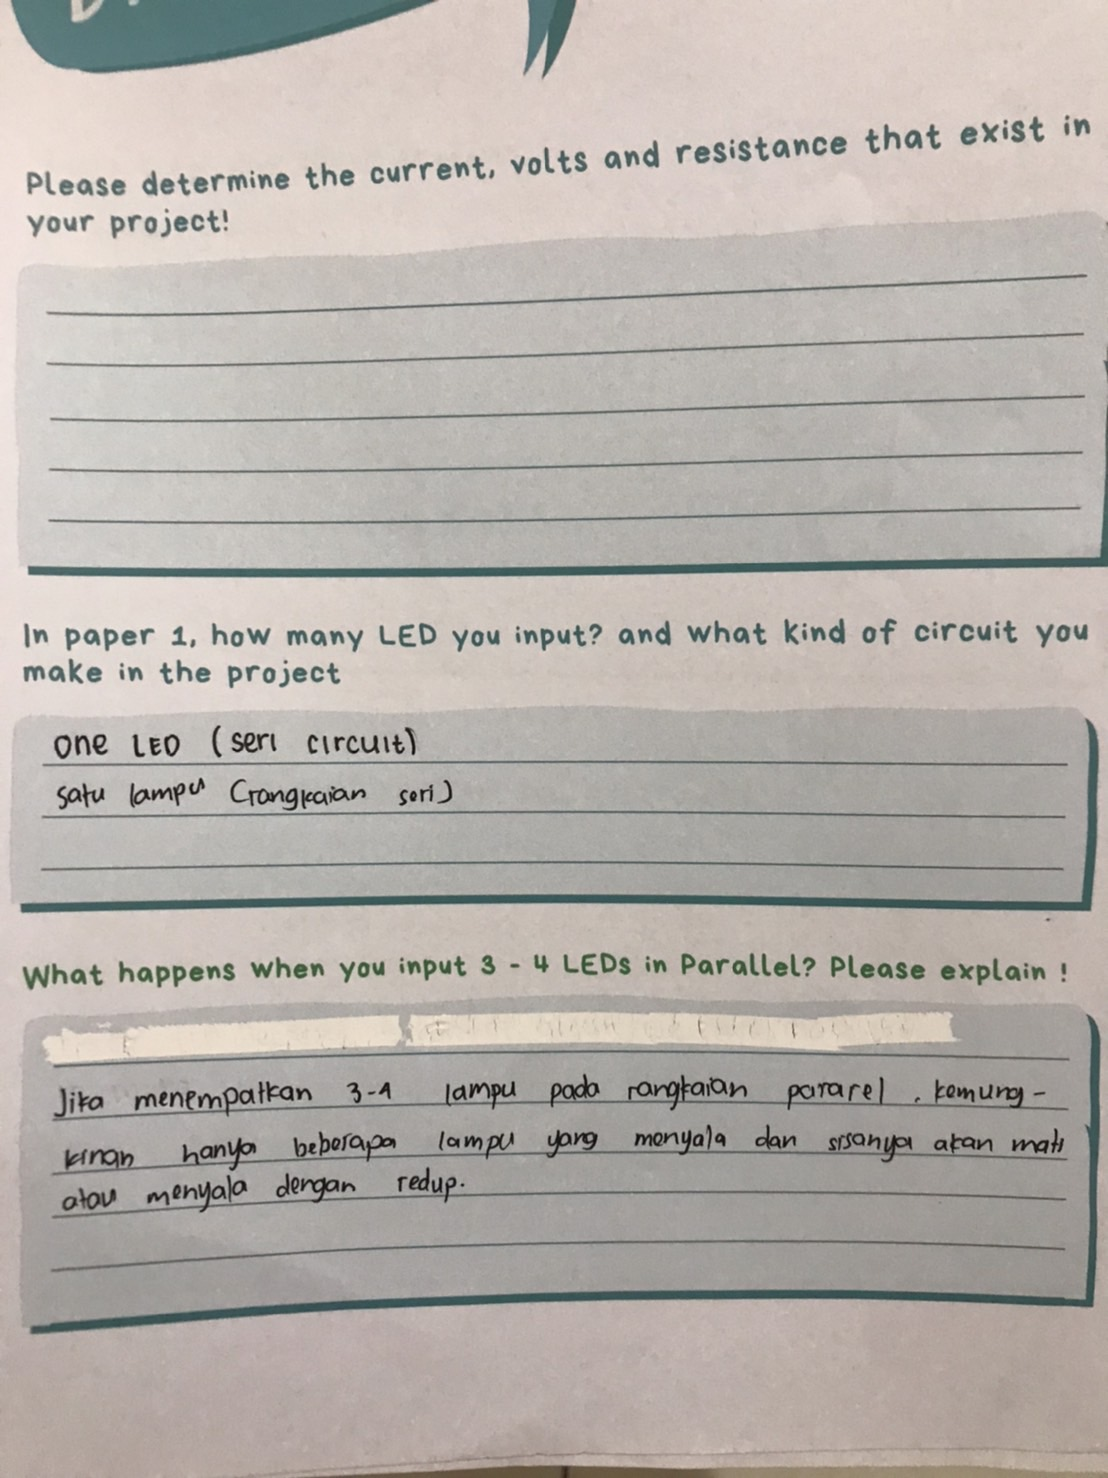 Please determine the current, volts and resistance that exist in
your project!
In paper 1, how many LED you input? and what kind of circuit you
make in the project
one LED (seri circuit)
satu lampu (rangkaian seri)
What happens when you input 3 - 4 LEDs in Parallel? Please explain !
Jika menempatkan 3-4 lampu pada rangkaian pararel , kemung-
kinan hanya beberapa lampu yang menyala dan sisanya akan mati
atau menyala dengan redup.